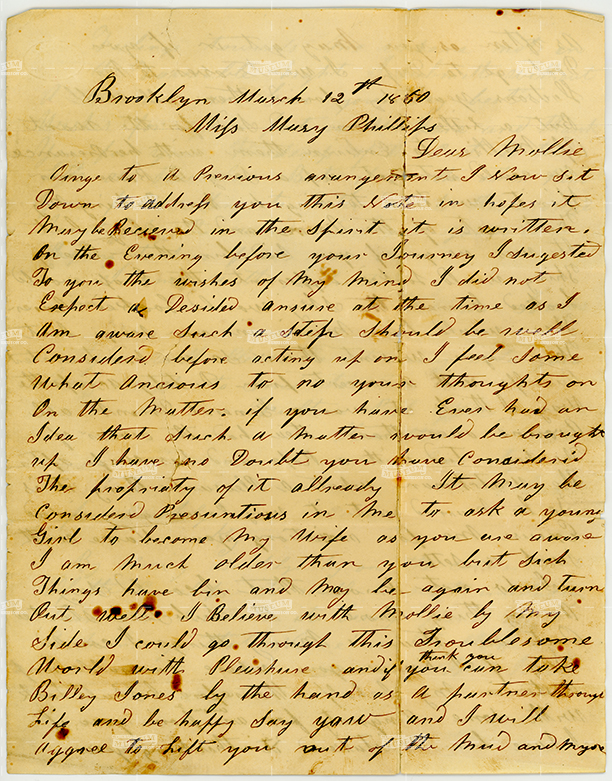 Brooklyn March 12th 1860
Miss Mary Phillips
Dear Mollie
Oinge to a Previous arangement I Now Sit
Down to address you this Note in hopes it
May be Recieved in the Spirit it is written.
On the Evening before your Journey I Sugested
To you the wishes of My Mind I did not
Expect a Desided ansure at the time as I
Am aware Such a Step Should be well
Considerd before acting up on I feel Some
What Ancious to no your thoughts on
On the Matter. if you have Ever had an
Idea that Such a Matter would be brought
up I have no Doubt you have Considerd
The propriaty of it allready It May be
Considerd Presuntious in Me to ask a young
Girl to become My Wife as you are aware
I am Much older than you but Sich
Things have bin and May be again and turn
Out well I Believe with Mollie by My
Side I could go through this Troublesome
World with Pleashure and if you think you can take
Billey Jones by the hand as a partner through
Life and be happy Say yaw and I will
Aggree to lift you out of the Mud and